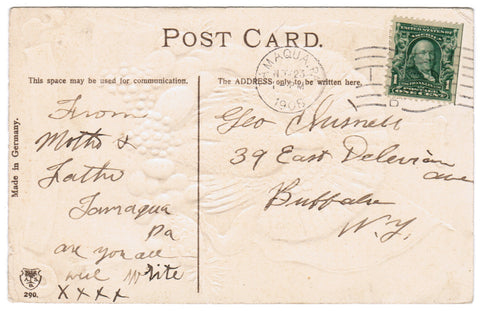 POST CARD.
This space may be used for communication.
The ADDRESS only to be written here.
TAMAQUA, PA
1908
UNITED STATES OF AMERICA
1
Made in Germany.
From
Mother &
Father
Tamaqua
Pa
are you all
well Write
xxxx
Geo
39 East Delevan
ave
Buffalo
N.Y.
290.